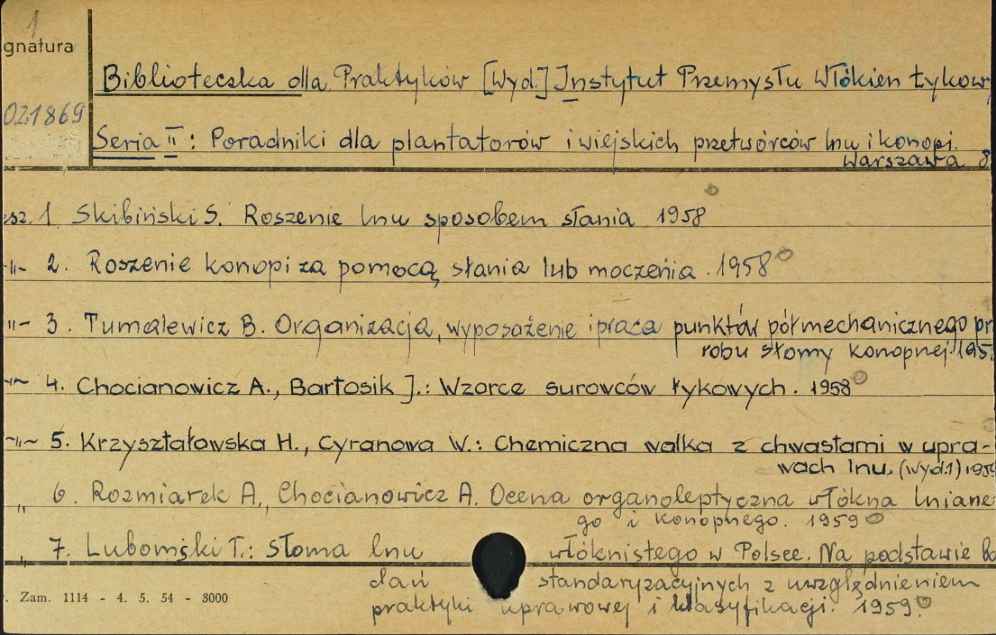 1
gnatura
Biblioteczka dla Praktyków [Wyd.] Instytut Przemysłu Włókien Łykow
021869
Seria II: Poradniki dla plantatorów i wiejskich przetwórców lnu i konopi.
Warszawa 8
esz. 1. Skibiński S. Roszenie lnu sposobem słania 1958
-"- 2. Roszenie konopi za pomocą słania lub moczenia. 1958
"- 3. Tumalewicz B. Organizacja, wyposażenie i praca punktów półmechanicznego pr
robu słomy konopnej 195
-"- 4. Chocianowicz A., Bartosik J.: Wzorce surowców łykowych. 1958
-"- 5. Krzyształowska H., Cyranowa W.: Chemiczna walka z chwastami w upra-
wach lnu. (wyd.1) 1959
" 6. Rozmiarek A., Chocianowicz A. Ocena organoleptyczna włókna lniane
go i konopnego. 1959
" 7. Lubomski T.: Słoma lnu włóknistego w Polsce. Na podstawie ba
dań standaryzacyjnych z uwzględnieniem
praktyki uprawowej i klasyfikacji. 1959.
. Zam. 1114 - 4. 5. 54 - 8000